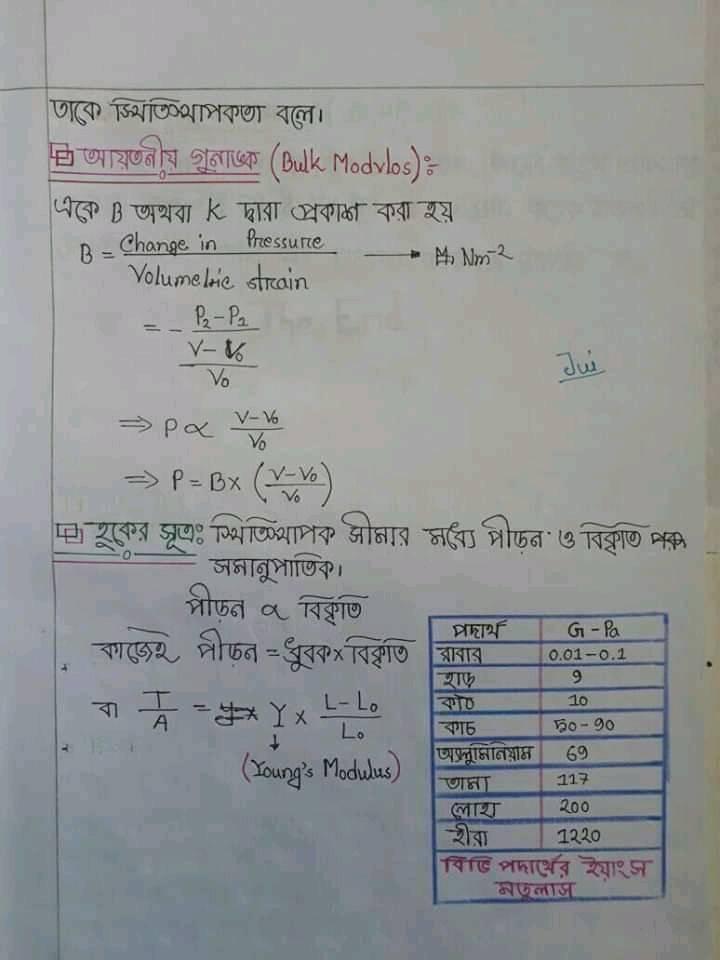 তাকে স্থিতিস্থাপকতা বলে।
আয়তনীয় গুনাঙক (Bulk Modvlos)ঃ
একে B অথবা K দ্বারা প্রকাশ করা হয়
B = Change in Pressure / Volumetric strain → Nm⁻²
= - (P₂-P₁) / ((V-V₀) / V₀)
Jui
⇒ P ∝ (V-V₀) / V₀
⇒ P = B× ((V-V₀) / V₀)
হুকের সূত্রঃ স্থিতিস্থাপক সীমার মধ্যে পীড়ন ও বিকৃতি
সমানুপাতিক।
পীড়ন ∝ বিকৃতি
কাজেই পীড়ন = ধ্রুবক × বিকৃতি
বা T/A = Y × (L-L₀) / L₀
↓
(Young's Modulus)
পদার্থ G-Pa
রাবার 0.01-0.1
হাড় 9
কাঠ 10
কাচ 50-90
অ্যালুমিনিয়াম 69
তামা 117
লোহা 200
হীরা 1220
বিভি পদার্থের ইয়াংস
মডুলাস